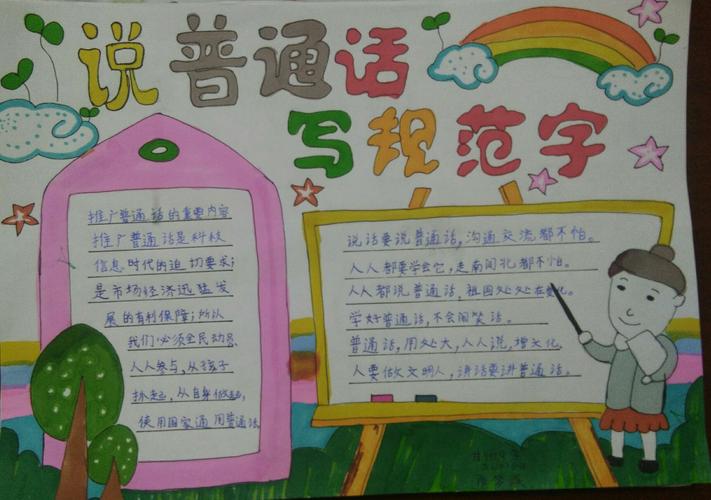 说普通话
写规范字
推广普通话的重要内容
推广普通话是科技
信息时代的迫切要求;
是市场经济迅猛发
展的有利保障;所以
我们必须全民动员
人人参与,从孩子
抓起,从自身做起,
使用国家通用普通话
说话要说普通话,沟通交流都不怕。
人人都要学会它,走南闯北都不怕。
人人都说普通话,祖国处处在变化。
学好普通话,不会闹笑话。
普通话,用处大,人人说,增文化
人要做文明人,讲话要讲普通话。